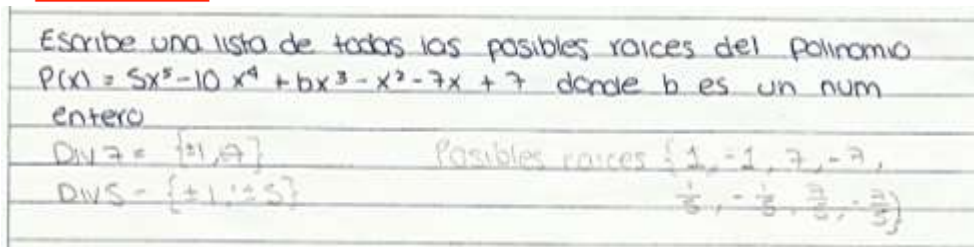 Escribe una lista de todas las posibles raíces del Polinomio
P(x) = 5x⁵-10x⁴ + bx³ - x² - 7x + 7 donde b es un num
entero
Div 7 = {±1, 7} Posibles raices {1, -1, 7, -7,
Div 5 - {±1, ±5} 1/5, -1/5, 7/5, -7/5}